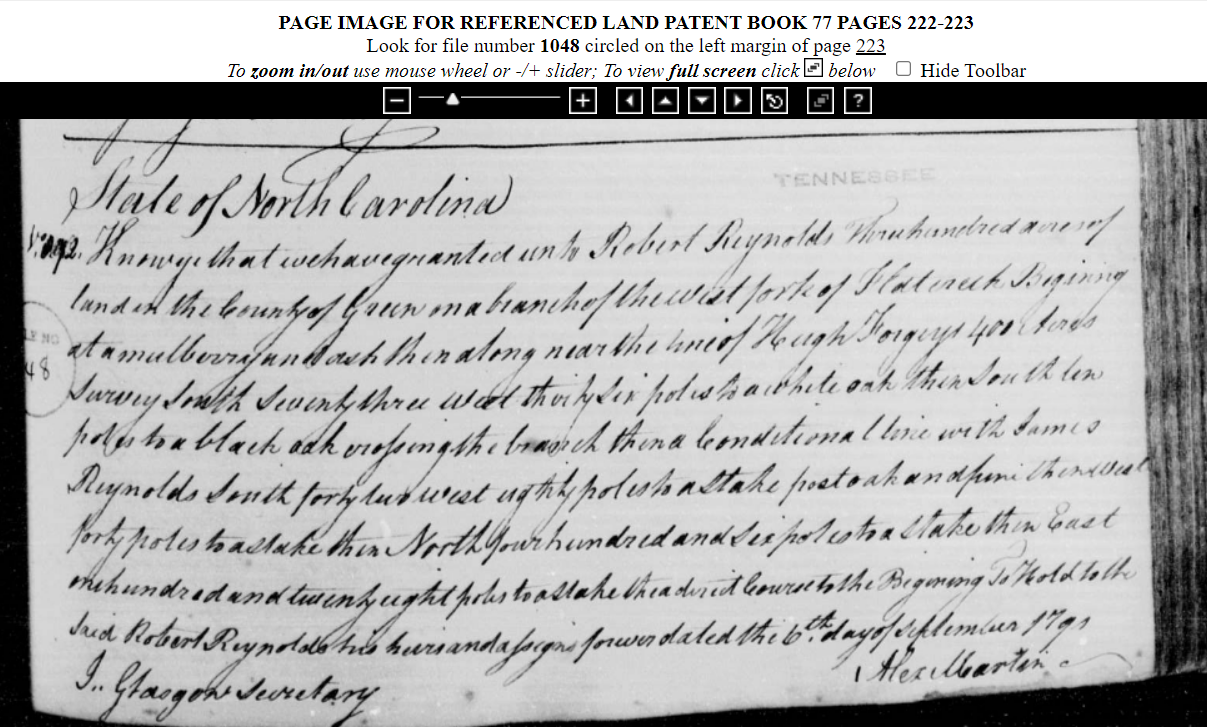 PAGE IMAGE FOR REFERENCED LAND PATENT BOOK 77 PAGES 222-223
Look for file number 1048 circled on the left margin of page 223
To zoom in/out use mouse wheel or -/+ slider; To view full screen click below Hide Toolbar
TENNESSEE
State of North Carolina
Know ye that we have granted unto Robert Reynolds Three hundred acres of
land in the County of Green on a branch of the west fork of Flat creek Begining
at a mulberry and ash then along near the line of Hugh Forgeys 400 Acres
Survey South Seventy three west thirty six poles to a white oak then South ten
poles to a black oak crossing the branch then a Conditional line with James
Reynolds South forty two west eighty poles to a Stake post oak and pine then west
forty poles to a stake then North four hundred and Six poles to a Stake then East
one hundred and twenty eight poles to a stake then a direct Course to the Begining To Hold to the
said Robert Reynolds his heirs and assigns forever dated the 6th. day of September 1791
Alex Martin
J.. Glasgow Secretary
48